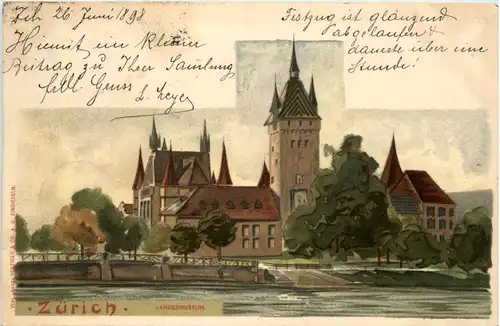 Zch 26 Juni 1898
Hiemit ein kleiner
Beitrag zu Ihrer Samlung
frdl. Gruss
Festzug ist glänzend
abgelaufen &
dauerte über eine
Stunde!
Zürich.
LANDESMUSEUM.